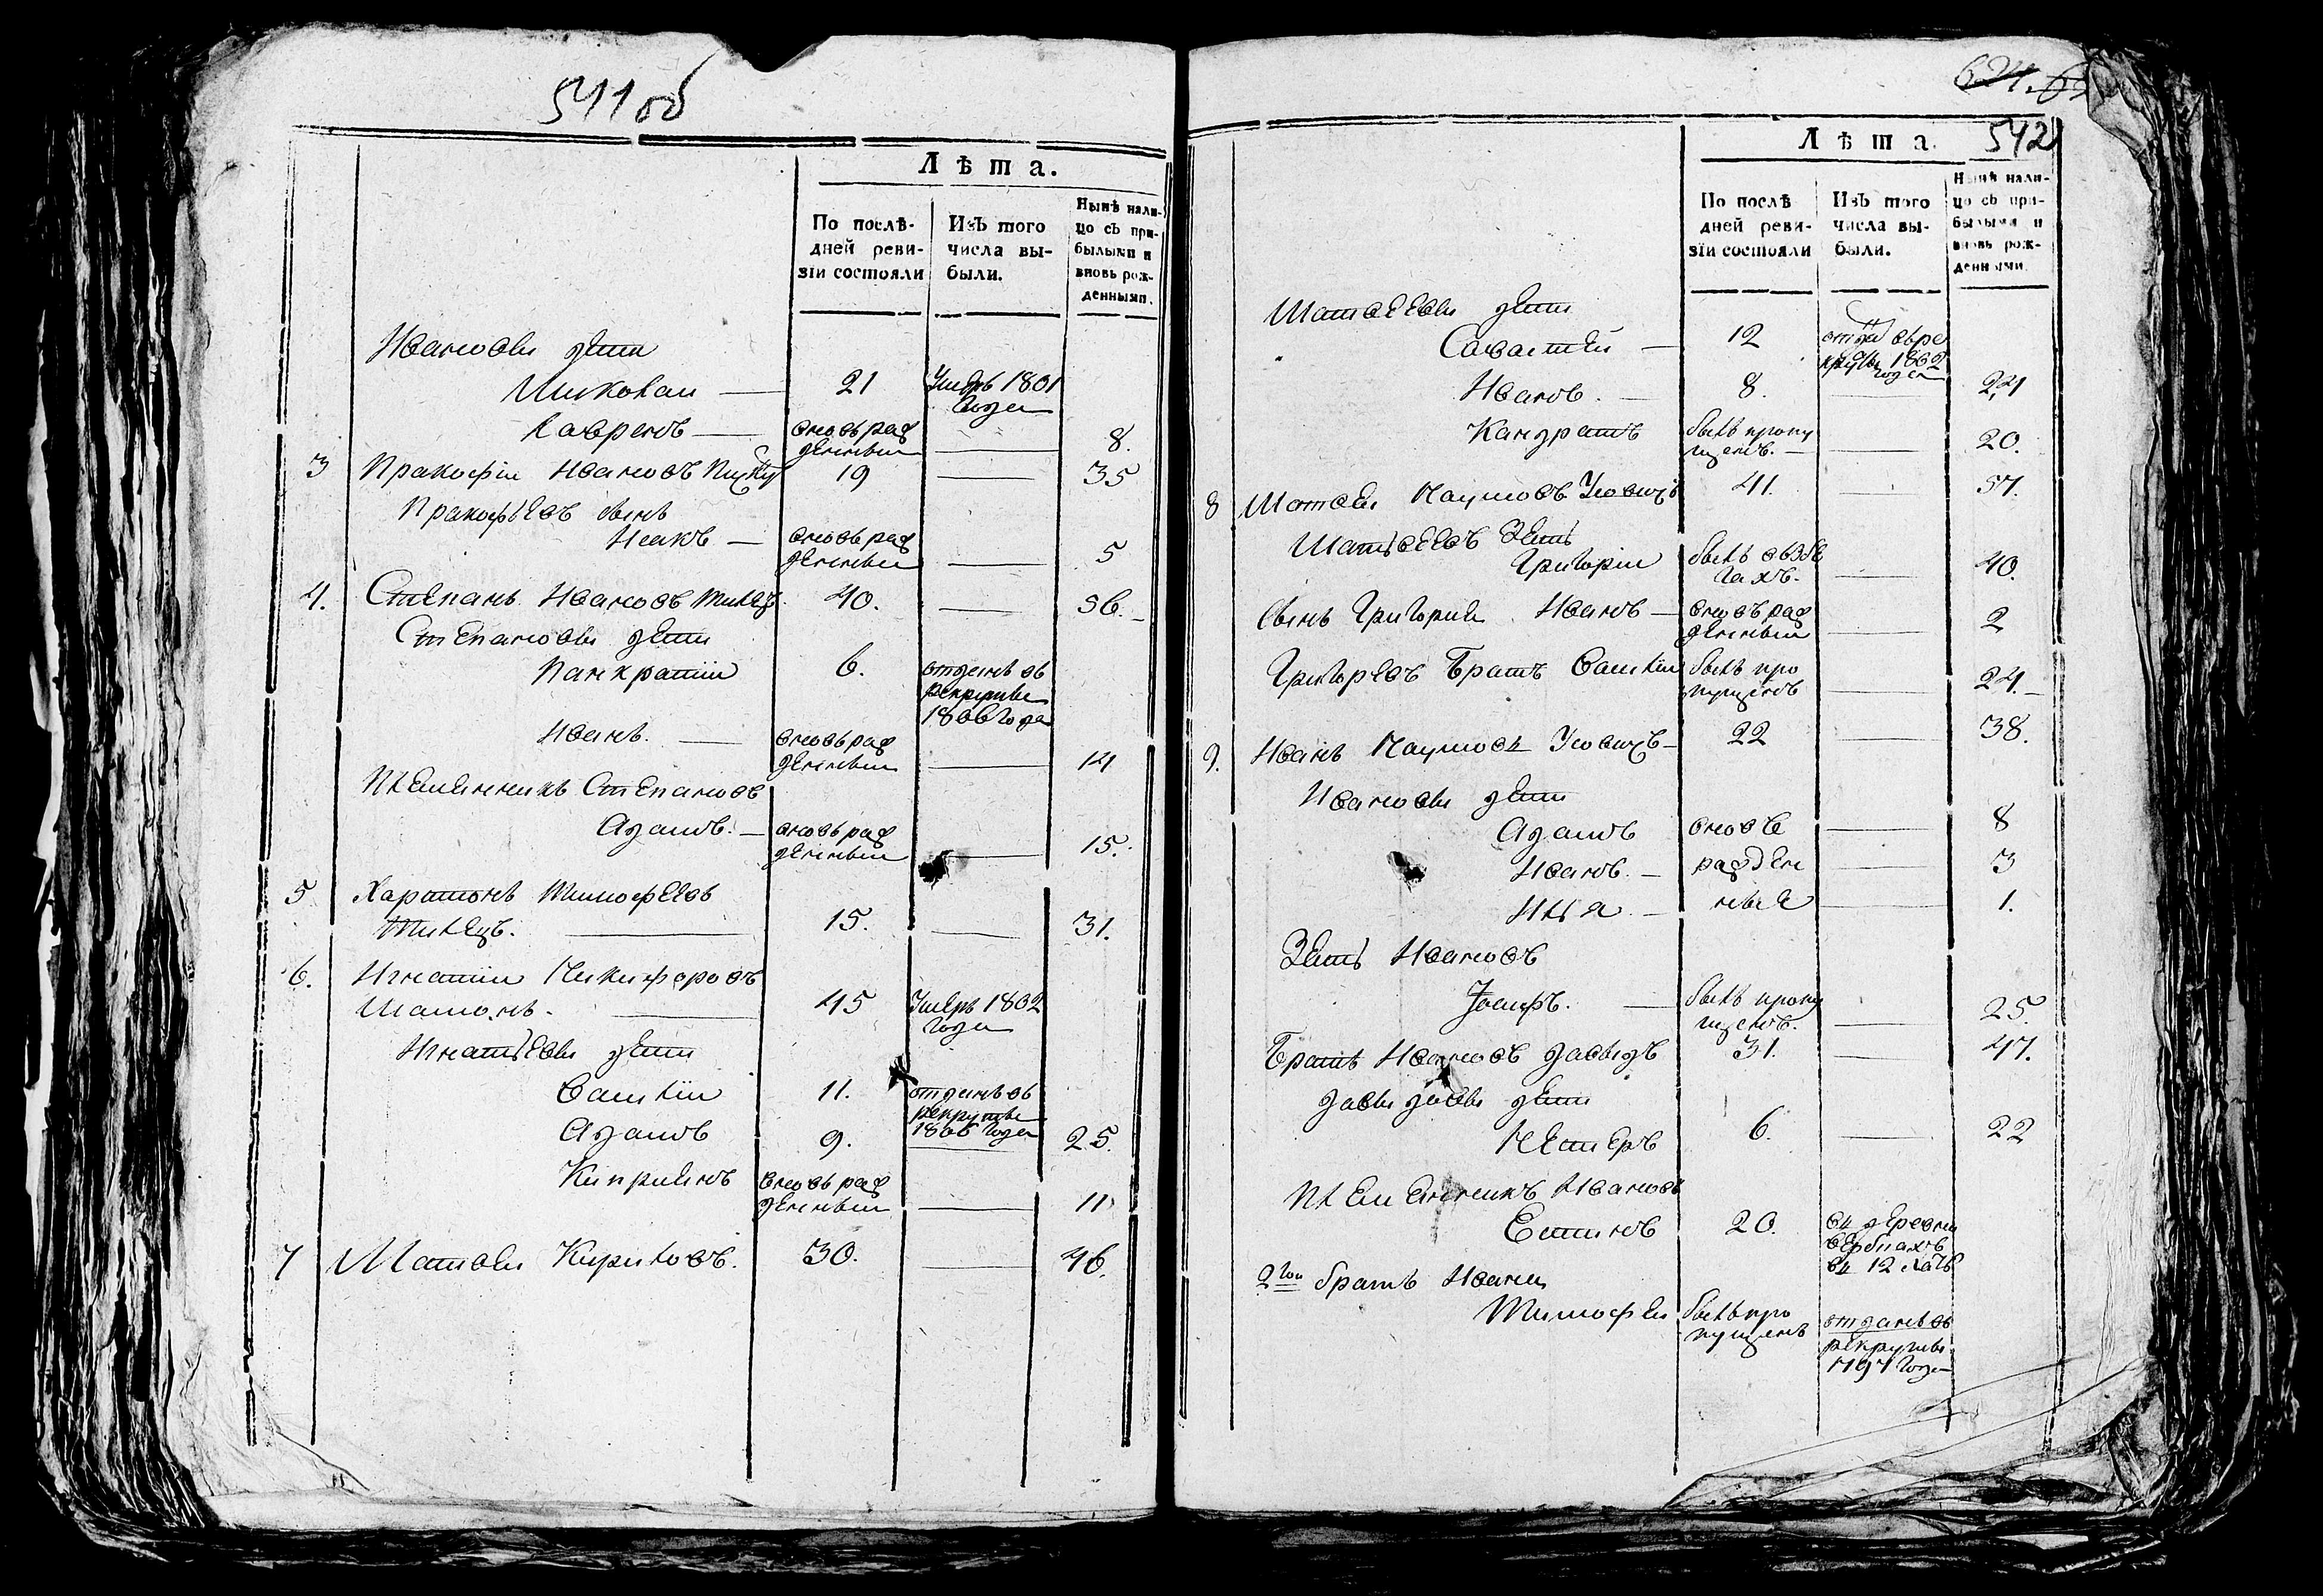 541 об
Лѣта.
По послѣ-
дней реви-
зіи состояли
Изъ того
числа вы-
были.
Нынѣ нали-
цо съ при-
былыми и
вновь рож-
денными.
Ивановы дети
Миколаи — 21 Умеръ 1801
года
Лавренъ — вновь раж
денныи — 8.
3 Пракофіи Ивановъ 19 — 35
Пракофьевъ сынъ
Исакъ — вновь раж
денныи — 5
4. Степанъ Ивановъ 40. — 56.
Степановы дети
Панкратіи 6. отданъ въ
рекруты
1806 года
Иванъ. — вновь раж
денныи — 14
Племянникъ Степановъ
Адамъ. — вновь раж
денныи — 15.
5 Харитонъ Тимофеевъ
15. — 31.
6. Игнатіи Никифоровъ
45 Умеръ 1802
года
Игнатьевы дети
Василіи 11. отданъ въ
рекруты
1806 года
Адамъ 9. — 25.
Киприянъ вновь раж
денныи — 11
7 Матвеи Кириловъ. 30. — 46.
542
Лѣта.
По послѣ
дней реви-
зіи состояли
Изъ того
числа вы-
были.
Нынѣ нали-
цо съ при-
былыми и
вновь рож-
денными.
Матвеевы дети
Савастеи — 12
года
Иванъ. — 8. — 24
Кандратъ былъ пропу
щенъ. — 20.
8 Матвеи Наумовъ 41. — 57.
Матвеевъ Зять
Григоріи былъ въ бе
гахъ. — 40.
Сынъ Григория Иванъ — вновь раж
денныи — 2
Григорьевъ Братъ Василіи былъ про
пущенъ — 24.
9. Иванъ Наумовъ — 22 — 38.
Ивановы дети
Адамъ вновь — 8
Иванъ. — ражден — 3
Илья. — ныя — 1.
Зять Ивановъ
Іосифъ. — былъ пропу
щенъ. — 25.
Братъ Ивановъ Давыдъ 31. — 47.
Давыдовы дети
Нестеръ 6. — 22
Племянникъ Ивановъ
20. въ деревни
въ 12
2гои братъ Ивана
Тимофеи былъ про
пущенъ отданъ въ
рекруты
1797 года